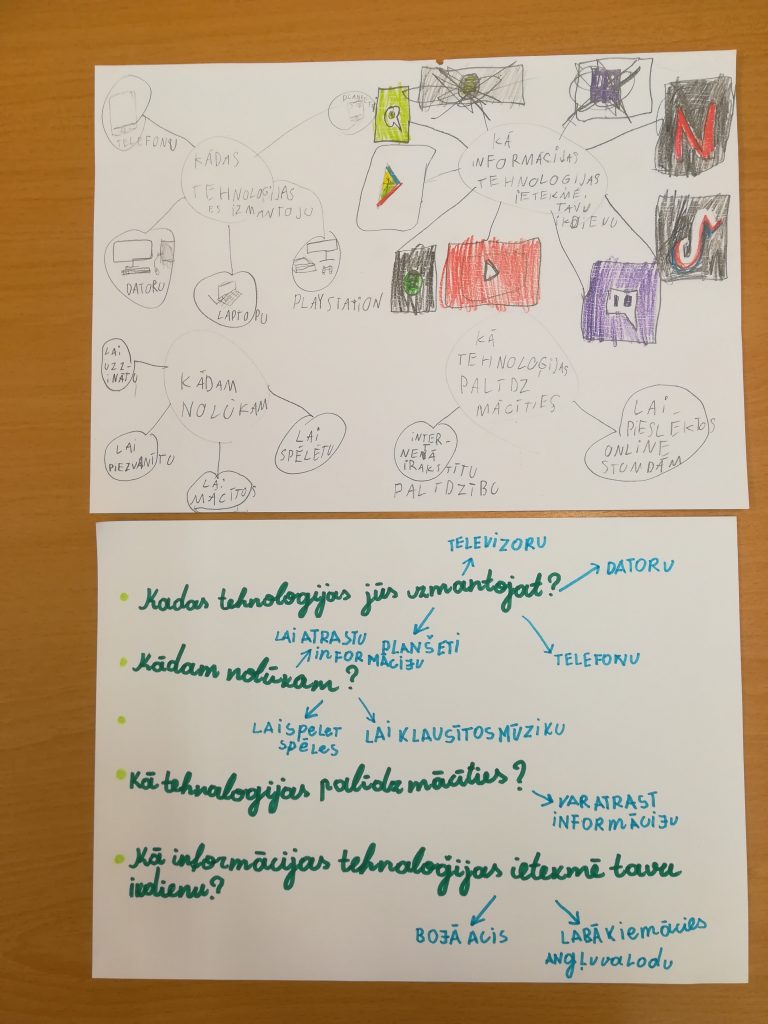 TELEFONU
PLANŠETI
KĀDAS
TEHNOLOĢIJAS
ES IZMANTOJU
DATORU
LAPTOPU
PLAYSTATION
KĀ
INFORMĀCIJAS
TEHNOLOĢIJAS
IETEKMĒ
TAVU
IKDIENU
N
LAI
UZZI-
NĀTU
KĀDAM
NOLŪKAM
LAI
PIEZVANĪTU
LAI
MĀCĪTOS
LAI
SPĒLĒTU
KĀ
TEHNOLOĢIJAS
PALĪDZ
MĀCĪTIES
INTER-
NETĀ
IRAKSTĪTU
PALĪDZĪBU
LAI
PIESLĒKTOS
ONLINE
STUNDĀM
TELEVIZORU
DATORU
Kadas tehnoloģijas jūs izmantojat?
PLANŠETI
TELEFONU
LAI ATRASTU
INFORMĀCIJU
Kādam nolūkam?
LAI SPĒLĒT
SPĒLES
LAI KLAUSĪTOS MŪZIKU
Kā tehnaloģijas palīdz mācīties?
VAR ATRAST
INFORMĀCIJU
Kā informācijas tehnaloģijas ietekmē tavu
ikdienu?
BOJĀ ACIS
LABĀK iemācies
ANGĻU valodu